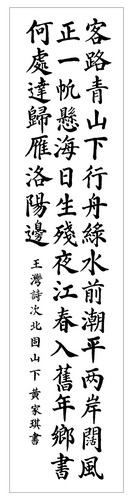 客路青山下行舟綠水前潮平两岸闊風
正一帆懸海日生殘夜江春入舊年鄉書
何處達歸雁洛陽邊
王灣詩次北固山下 黃家琪書